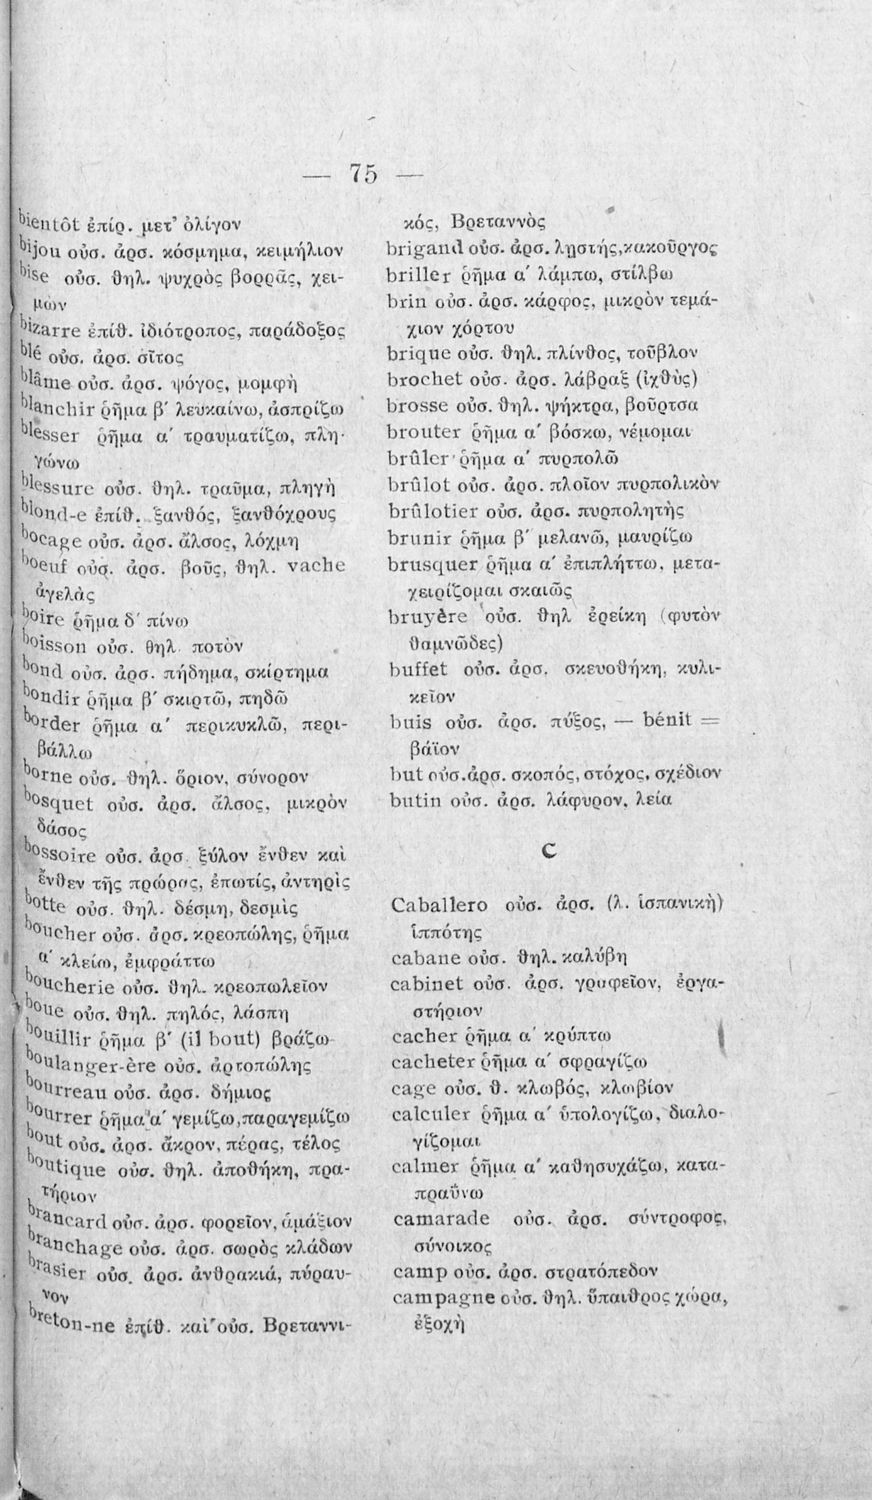 — 75 —
bientôt ἐπίρ. μετ' ὀλίγον
bijou οὐσ. ἀρσ. κόσμημα, κειμήλιον
bise οὐσ. θηλ. ψυχρὸς βορρᾶς, χει-
μὼν
bizarre ἐπίθ. ἰδιότροπος, παράδοξος
blé οὐσ. ἀρσ. σῖτος
blâme οὐσ. ἀρσ. ψόγος, μομφὴ
blanchir ῥῆμα β′ λευκαίνω, ἀσπρίζω
blesser ῥῆμα α′ τραυματίζω, πλη-
γώνω
blessure οὐσ. θηλ. τραῦμα, πληγὴ
blond-e ἐπίθ. ξανθός, ξανθόχρους
bocage οὐσ. ἀρσ. ἄλσος, λόχμη
boeuf οὐσ. ἀρσ. βοῦς, θηλ. vache
ἀγελὰς
boire ῥῆμα δ′ πίνω
boisson οὐσ. θηλ. ποτὸν
bond οὐσ. ἀρσ. πήδημα, σκίρτημα
bondir ῥῆμα β′ σκιρτῶ, πηδῶ
border ῥῆμα α′ περικυκλῶ, περι-
βάλλω
borne οὐσ. θηλ. ὅριον, σύνορον
bosquet οὐσ. ἀρσ. ἄλσος, μικρὸν
δάσος
bossoire οὐσ. ἀρσ. ξύλον ἔνθεν καὶ
ἔνθεν τῆς πρώρας, ἐπωτίς, ἀντηρὶς
botte οὐσ. θηλ. δέσμη, δεσμὶς
boucher οὐσ. ἀρσ. κρεοπώλης, ῥῆμα
α′ κλείω, ἐμφράττω
boucherie οὐσ. θηλ. κρεοπωλεῖον
boue οὐσ. θηλ. πηλός, λάσπη
bouillir ῥῆμα β′ (il bout) βράζω
boulanger-ère οὐσ. ἀρτοπώλης
bourreau οὐσ. ἀρσ. δήμιος
bourrer ῥῆμα α′ γεμίζω, παραγεμίζω
bout οὐσ. ἀρσ. ἄκρον, πέρας, τέλος
boutique οὐσ. θηλ. ἀποθήκη, πρα-
τήριον
brancard οὐσ. ἀρσ. φορεῖον, ἁμάξιον
branchage οὐσ. ἀρσ. σωρὸς κλάδων
brasier οὐσ. ἀρσ. ἀνθρακιά, πύραυ-
νον
breton-ne ἐπίθ. καὶ οὐσ. Βρεταννι-
κός, Βρεταννὸς
brigand οὐσ. ἀρσ. λῃστής, κακοῦργος
briller ῥῆμα α′ λάμπω, στίλβω
brin οὐσ. ἀρσ. κάρφος, μικρὸν τεμά-
χιον χόρτου
brique οὐσ. θηλ. πλίνθος, τοῦβλον
brochet οὐσ. ἀρσ. λάβραξ (ἰχθὺς)
brosse οὐσ. θηλ. ψήκτρα, βοῦρτσα
brouter ῥῆμα α′ βόσκω, νέμομαι
brûler ῥῆμα α′ πυρπολῶ
brûlot οὐσ. ἀρσ. πλοῖον πυρπολικὸν
brûlotier οὐσ. ἀρσ. πυρπολητὴς
brunir ῥῆμα β′ μελανῶ, μαυρίζω
brusquer ῥῆμα α′ ἐπιπλήττω, μετα-
χειρίζομαι σκαιῶς
bruyère οὐσ. θηλ ἐρείκη (φυτὸν
θαμνῶδες)
buffet οὐσ. ἀρσ. σκευοθήκη, κυλι-
κεῖον
buis οὐσ. ἀρσ. πύξος, — bénit =
βάϊον
but οὐσ. ἀρσ. σκοπός, στόχος, σχέδιον
butin οὐσ. ἀρσ. λάφυρον, λεία
C
Caballero οὐσ. ἀρσ. (λ. ἱσπανικὴ)
ἱππότης
cabane οὐσ. θηλ. καλύβη
cabinet οὐσ. ἀρσ. γραφεῖον, ἐργα-
στήριον
cacher ῥῆμα α′ κρύπτω
cacheter ῥῆμα α′ σφραγίζω
cage οὐσ. θ. κλωβός, κλωβίον
calculer ῥῆμα α′ ὑπολογίζω, διαλο-
γίζομαι
calmer ῥῆμα α′ καθησυχάζω, κατα-
πραΰνω
camarade οὐσ. ἀρσ. σύντροφος,
σύνοικος
camp οὐσ. ἀρσ. στρατόπεδον
campagne οὐσ. θηλ. ὕπαιθρος χώρα,
ἐξοχὴ